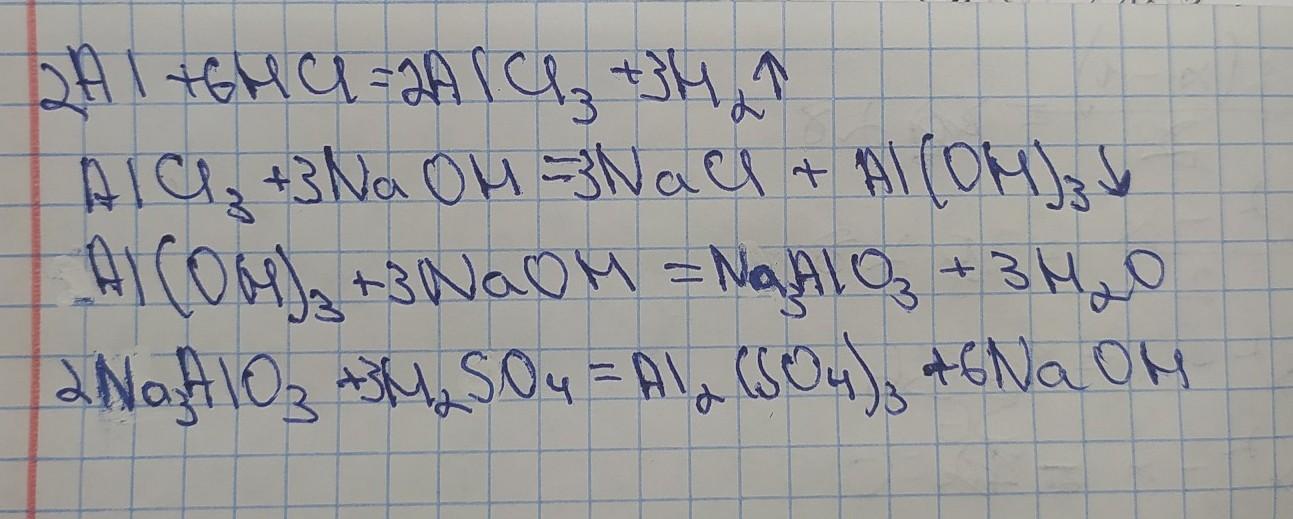 2Al + 6HCl = 2AlCl₃ + 3H₂↑
AlCl₃ + 3NaOH = 3NaCl + Al(OH)₃↓
Al(OH)₃ + 3NaOH = Na₃AlO₃ + 3H₂O
2Na₃AlO₃ + 3H₂SO₄ = Al₂(SO₄)₃ + 6NaOH